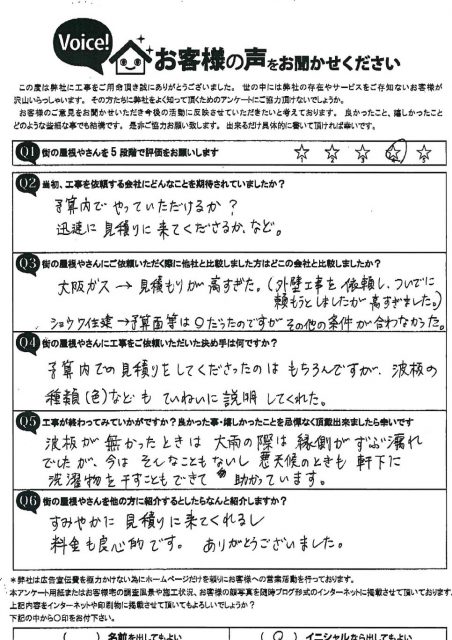 Voice!
お客様の声をお聞かせください
この度は弊社に工事をご用命頂き誠にありがとうございました。世の中には弊社の存在やサービスをご存知ないお客様が
沢山いらっしゃいます。その方たちに弊社をよく知って頂くためのアンケートにご協力頂けないでしょうか。
お客様のご意見をお聞かせいただき今後の活動に反映させていただきたいと考えております。良かったこと、嬉しかったこと
どのような些細な事でも結構です。是非ご協力お願い致します。出来るだけ具体的に書いて頂ければ幸いです。
Q1 街の屋根やさんを5段階で評価をお願いします
1 2 3 4 5
Q2 当初、工事を依頼する会社にどんなことを期待されていましたか?
予算内でやっていただけるか?
迅速に見積りに来てくださるか、など。
Q3 街の屋根やさんにご依頼いただく際に他社と比較しました方はどこの会社と比較しましたか?
大阪ガス→見積もりが高すぎた。(外壁工事を依頼し、ついでに
頼もうとしましたが高すぎました。)
ショウワ住建→予算面等は○だったのですがその他の条件が合わなかった。
Q4 街の屋根やさんに工事をご依頼いただいた決め手は何ですか?
予算内での見積りをしてくださったのはもちろんですが、波板の
種類(色)などもていねいに説明してくれた。
Q5 工事が終わってみていかがですか?良かった事・嬉しかったことを忌憚なく頂戴出来ましたら幸いです
波板が無かったときは大雨の際は縁側がずぶ濡れ
でしたが、今はそんなこともないし悪天候のときも軒下に
洗濯物を干すこともできて助かっています。
Q6 街の屋根やさんを他の方に紹介するとしたらなんと紹介しますか?
すみやかに見積りに来てくれるし
料金も良心的です。ありがとうございました。
*弊社は広告宣伝費を極力かけない為にホームページだけを頼りにお客様への営業活動を行っております。
本アンケート用紙またはお客様宅の調査風景や施工状況、お客様の顔写真を随時ブログ形式のインターネットに掲載させて頂いております
上記内容をインターネットや印刷物に掲載させて頂いてもよろしいでしょうか?
下記の中から○印をお付下さい。
( )名前を出してもよい (○)イニシャルなら出してもよい